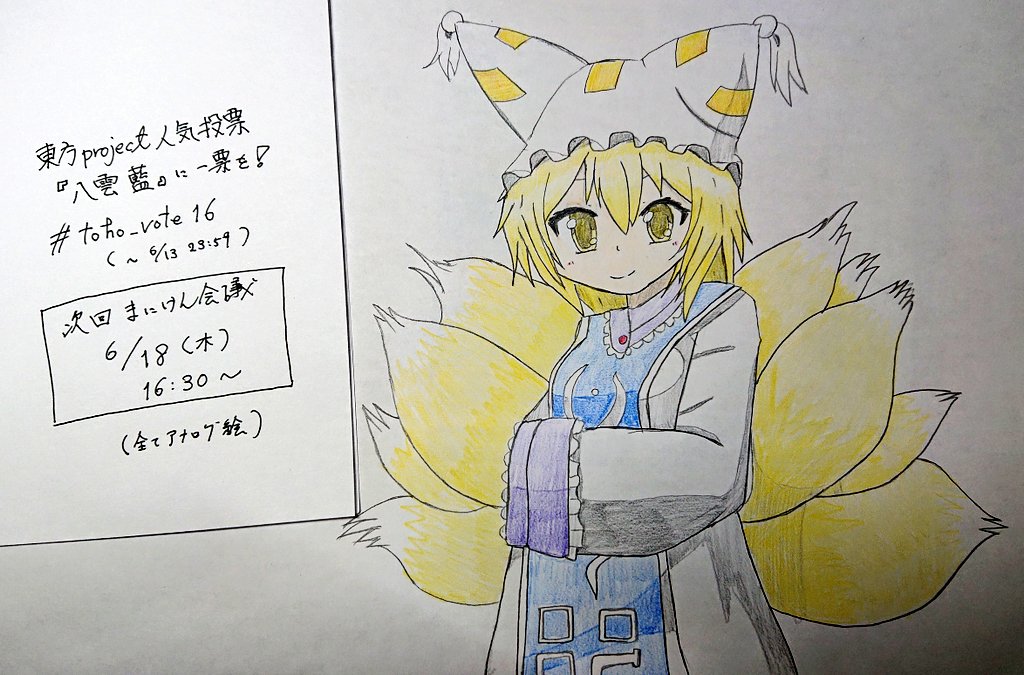 東方project人気投票
『八雲 藍』に一票を!
#toho_vote16
(~6/13 23:59)
次回 まにけん会議
6/18(木)
16:30~
(全てアナログ絵)